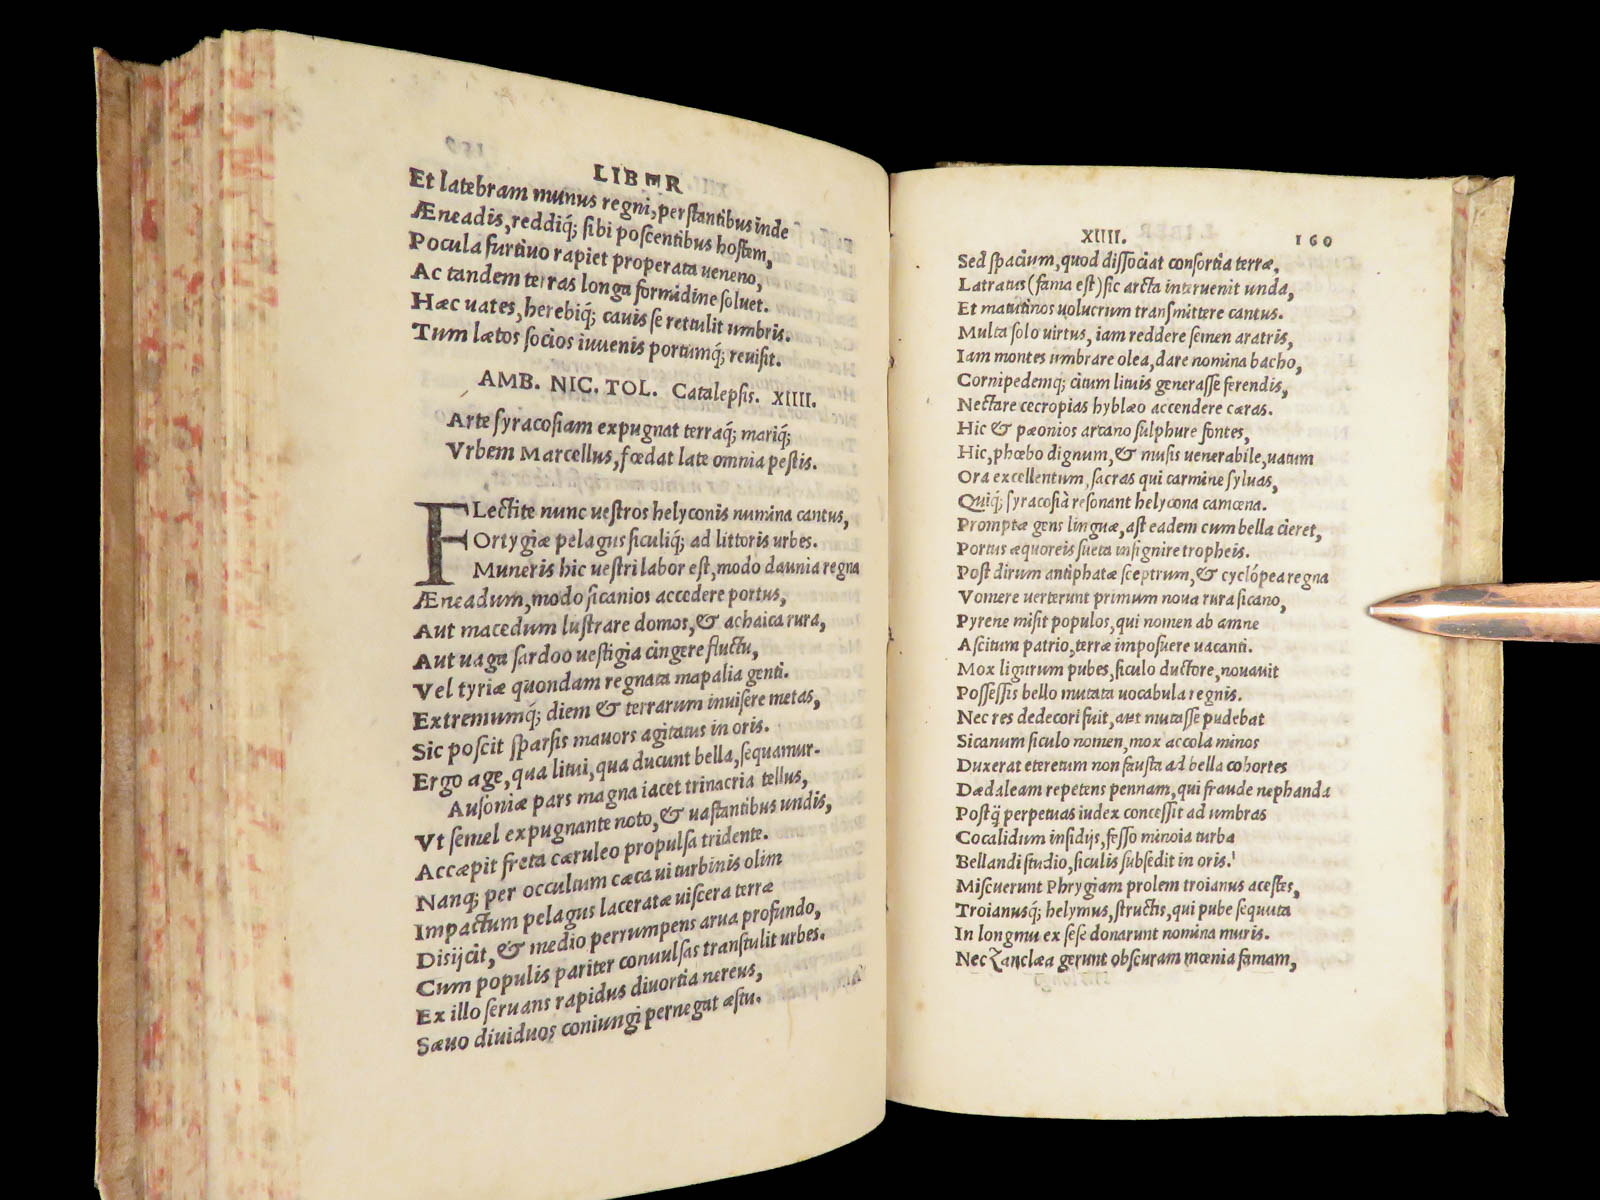 LIBER
Et latebram munus regni, perſtantibus inde
Æneadis, reddiq́; ſibi poſcentibus hoſtem,
Pocula furtiuo rapiet properata ueneno,
Ac tandem terras longa formidine ſoluet.
Hæc uates, herebiq́; cauis ſe rettulit umbris.
Tum lætos ſocios iuuenis portumq́; reuiſit.
AMB. NIC. TOL. Catalepſis. XIIII.
Arte ſyracoſiam expugnat terraq́; mariq́;
Vrbem Marcellus, fœdat late omnia peſtis.
FLectite nunc ueſtros helyconis numina cantus,
Ortygiæ pelagus ſiculiq́; ad littoris urbes.
Muneris hic ueſtri labor eſt, modo daunia regna
Æneadum, modo ſicanios accedere portus,
Aut macedum luſtrare domos, & achaica rura,
Aut uaga ſardoo ueſtigia cingere fluctu,
Vel tyriæ quondam regnata mapalia genti.
Extremumq́; diem & terrarum inuiſere metas,
Sic poſcit ſparſis mauors agitatus in oris.
Ergo age, qua litui, qua ducunt bella, ſequamur.
Auſoniæ pars magna iacet trinacria tellus,
Vt ſemel expugnante noto, & uaſtantibus undis,
Accæpit freta cæruleo propulſa tridente.
Nanq; per occultum cæca ui turbinis olim
Impactum pelagus laceratæ uiſcera terræ
Diſijcit, & medio perrumpens arua profundo,
Cum populis pariter conuulſas tranſtulit urbes.
Ex illo ſeruans rapidus diuortia nereus,
Sæuo diuiduos coniungi pernegat æſtu.
XIIII. 160
Sed ſpacium, quod diſſociat conſortia terræ,
Latratus (fama eſt) ſic arcta interuenit unda,
Et matutinos uolucrum tranſmittere cantus.
Multa ſolo uirtus, iam reddere ſemen aratris,
Iam montes umbrare olea, dare nomina bacho,
Cornipedemq; citum lituis generaſſe ferendis,
Nectare cecropias hyblæo accendere cæras.
Hic & pæonios arcano ſulphure fontes,
Hic, phœbo dignum, & muſis uenerabile, uatum
Ora excellentum, ſacras qui carmine ſyluas,
Quiq́; ſyracoſià reſonant helycona camœna.
Promptæ gens linguæ, aſt eadem cum bella cieret,
Portus æquoreis ſueta inſignire tropheis.
Poſt dirum antiphatæ ſceptrum, & cyclópea regna
Vomere uerterunt primum noua rura ſicano,
Pyrene miſit populos, qui nomen ab amne
Aſcitum patrio, terræ impoſuere uacanti.
Mox ligurum pubes, ſiculo ductore, nouauit
Poſſeſſis bello mutata uocabula regnis.
Nec res dedecori fuit, aut mutaſſe pudebat
Sicanum ſiculo nomen, mox accola minos
Duxerat eteretum non fauſta ad bella cohortes
Dædaleam repetens pennam, qui fraude nephanda
Poſtq̃ perpetuas iudex conceſſit ad umbras
Cocalidum inſidijs, feſſo minoia turba
Bellandi ſtudio, ſiculis ſubſedit in oris.
Miſcuerunt Phrygiam prolem troianus aceſtes,
Troianusq́; helymus, ſtructis, qui pube ſequuta
In longmu ex ſeſe donarunt nomina muris.
Nec Zanclæa gerunt obſcuram mœnia famam,